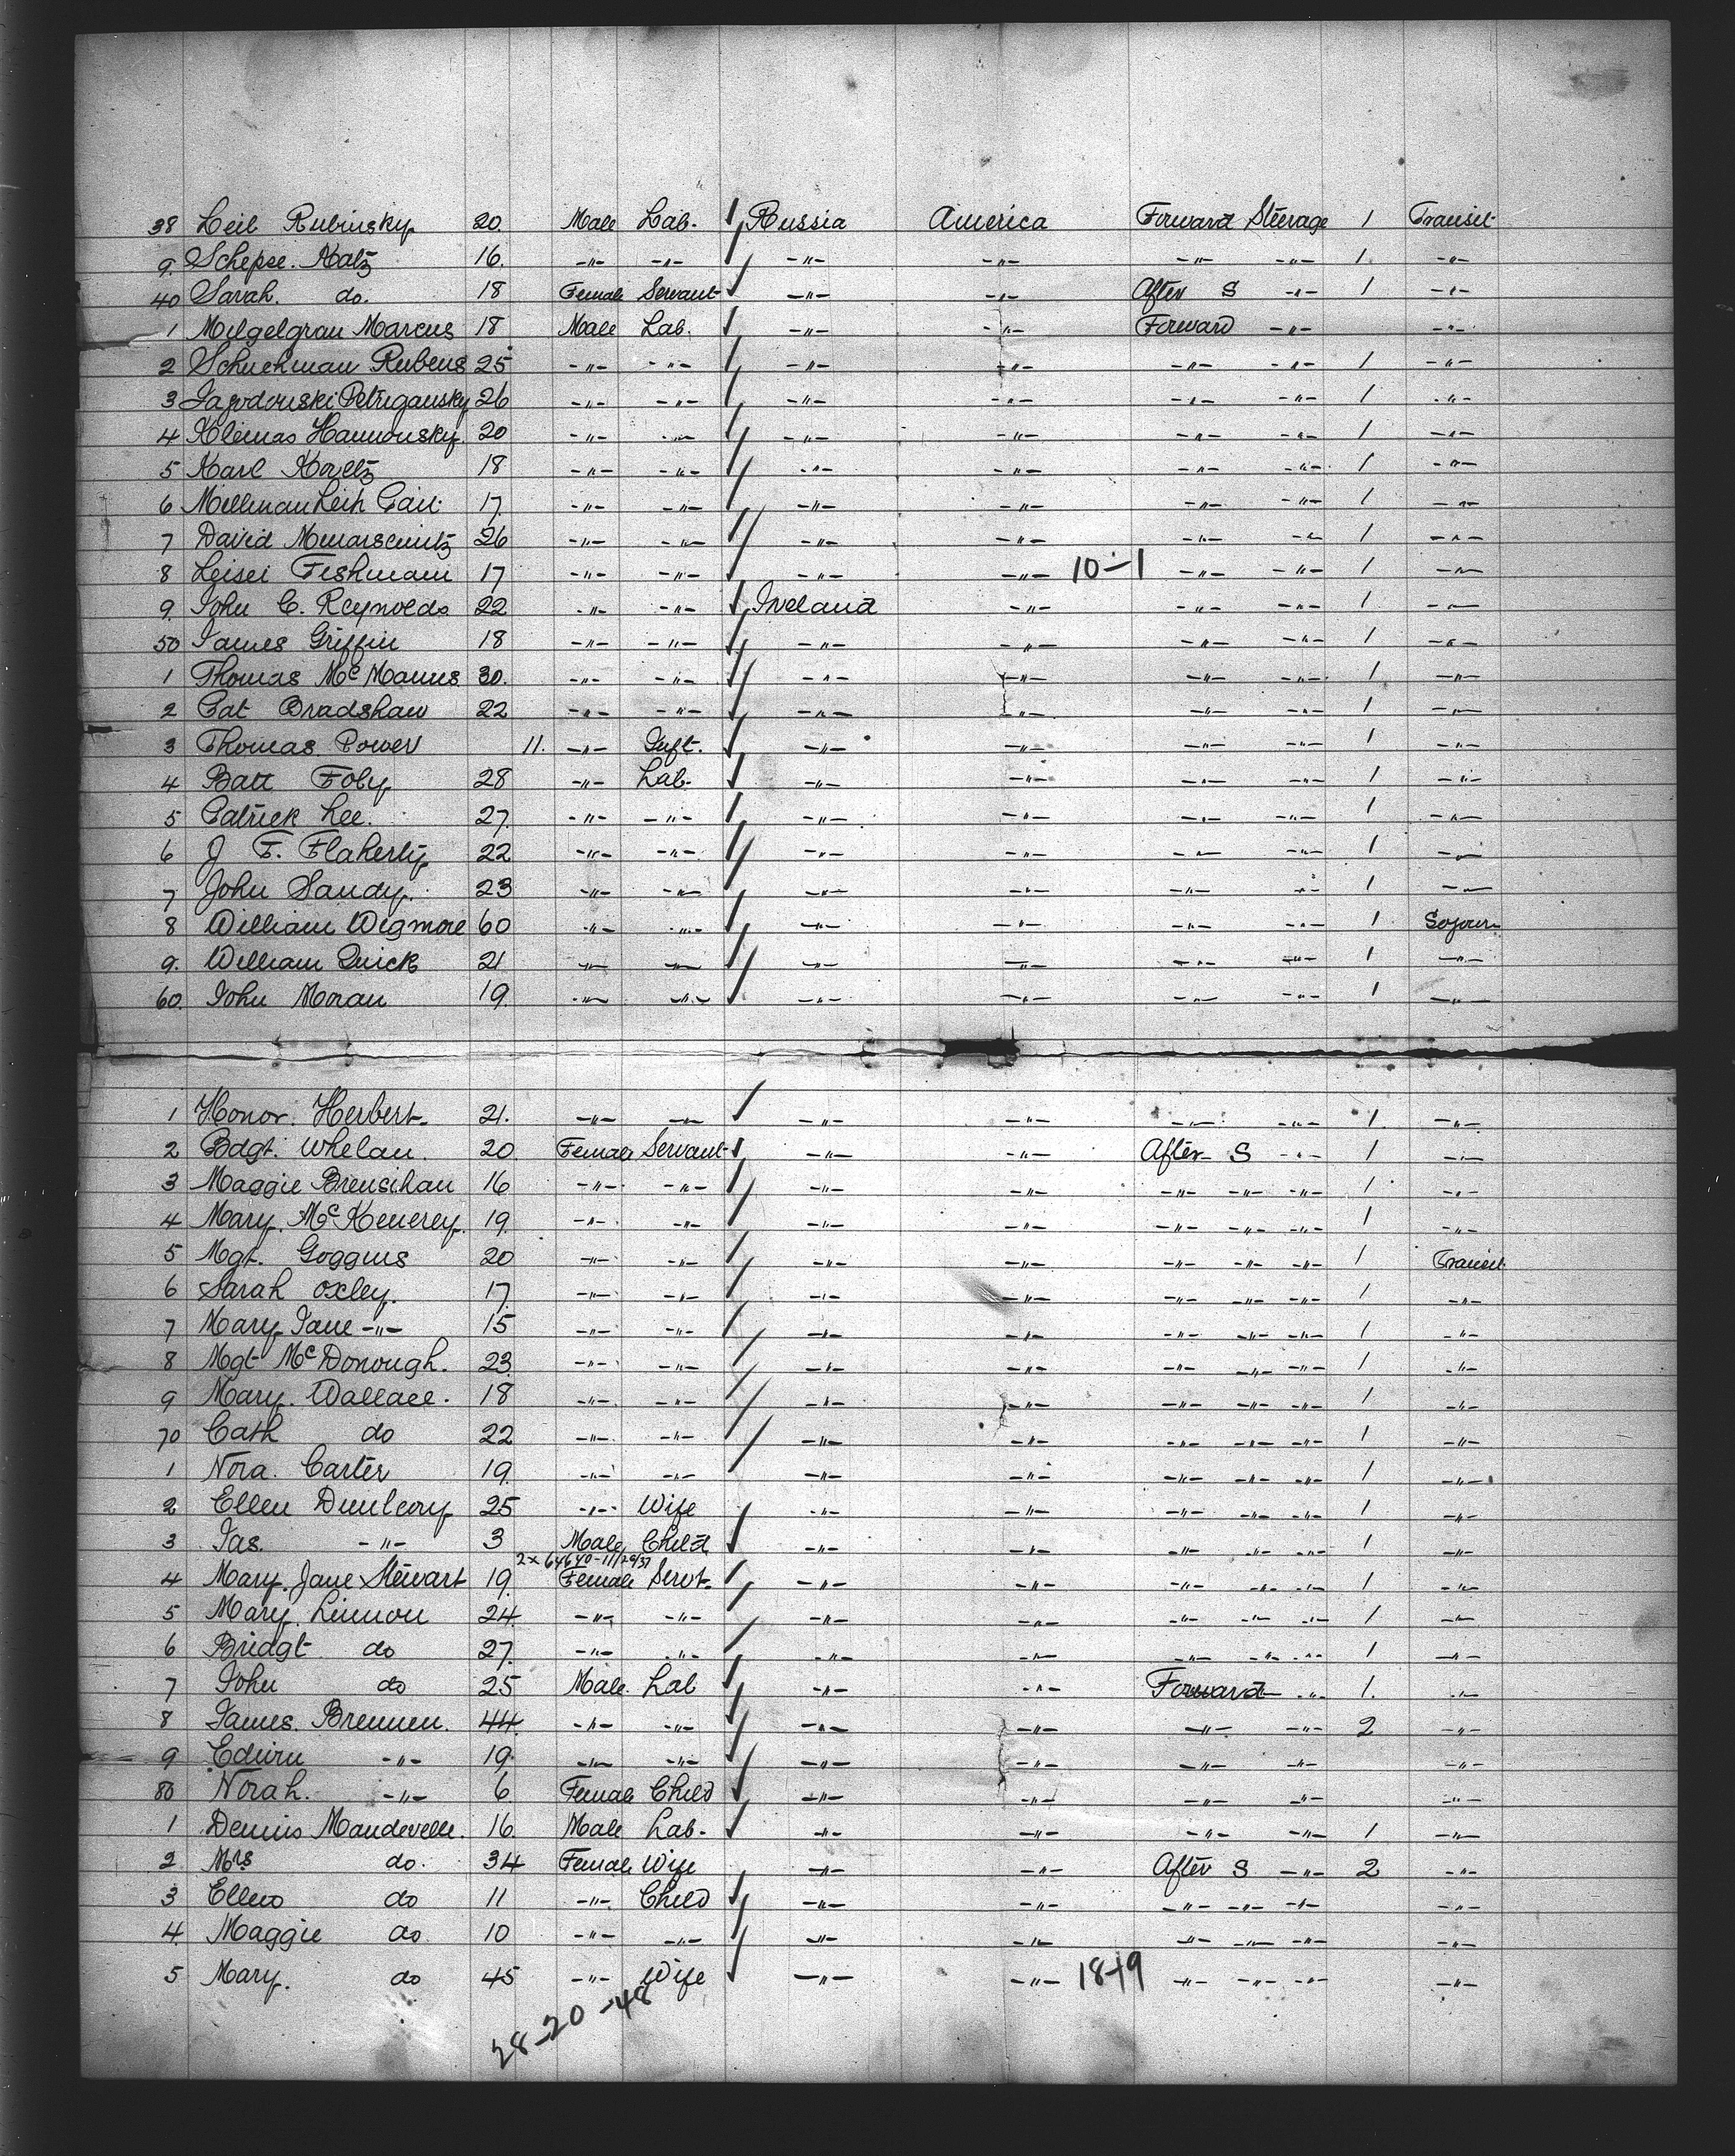 38 Leil Rubinsky 20. Male Lab. Russia America Forward Steerage 1 Transit
9. Schepse. Katz 16. -"- -"- -"- -"- -"- -"- 1. -"-
40 Sarah. do. 18 Female Servant -"- -"- After S -"- 1 -"-
1 Milgelgrau Marcus 18 Male Lab. -"- -"- Forward -"- -"-
2 Schuchman Rubens 25 -"- -"- -"- -"- -"- -"- 1 -"-
3 26 -"- -"- -"- -"- -"- -"- 1 -"-
4 Klemas Hamonsky. 20 -"- -"- -"- -"- -"- -"- 1 -"-
5 Karl Koveltz 18 -"- -"- -"- -"- -"- -"- 1 -"-
6 Millman Leih 17. -"- -"- -"- -"- -"- -"- 1 -"-
7 David 26 -"- -"- -"- -"- -"- -"- 1 -"-
8 Leisei Fishmann 17 -"- -"- -"- -"- 10-1 -"- -"- 1 -"-
9. John C. Reynolds 22 -"- -"- Ireland -"- -"- -"- 1 -"-
50 James Griffin 18 -"- -"- -"- -"- -"- -"- 1 -"-
1 Thomas McManus 30. -"- -"- -"- -"- -"- -"- 1 -"-
2 Pat Bradshaw 22 -"- -"- -"- -"- -"- -"- 1 -"-
3 Thomas Power 11. -"- Inft. -"- -"- -"- -"- 1 -"-
4 Batt Foby 28 -"- Lab. -"- -"- -"- -"- 1 -"-
5 Patrick Lee. 27. -"- -"- -"- -"- -"- -"- 1 -"-
6 J F. Flaherty 22 -"- -"- -"- -"- -"- -"- 1 -"-
7 John Sandy. 23 -"- -"- -"- -"- -"- -"- 1 -"-
8 William Wigmore 60 -"- -"- -"- -"- -"- -"- 1 Sojourn
9. William Quick 21 -"- -"- -"- -"- -"- -"- 1 -"-
60. John Moran 19. -"- -"- -"- -"- -"- -"- 1 -"-
1 Honor. Herbert. 21. -"- -"- -"- -"- -"- -"- 1. -"-
2 Bdgt. Whelan. 20 Female Servant -"- -"- After S -"- 1 -"-
3 Maggie Brensihan 16 -"- -"- -"- -"- -"- -"- -"- 1 -"-
4 Mary. McKenerey. 19. -"- -"- -"- -"- -"- -"- -"- 1 -"-
5 Mgt. Goggins 20 -"- -"- -"- -"- -"- -"- -"- 1 Transit
6 Sarah Oxley. 17. -"- -"- -"- -"- -"- -"- -"- 1 -"-
7 Mary Jane -"- 15 -"- -"- -"- -"- -"- -"- -"- 1 -"-
8 Mgt McDonough. 23. -"- -"- -"- -"- -"- -"- -"- 1 -"-
9 Mary. Wallace. 18 -"- -"- -"- -"- -"- -"- -"- 1 -"-
70 Cath do 22 -"- -"- -"- -"- -"- -"- -"- 1 -"-
1 Nora. Carter 19. -"- -"- -"- -"- -"- -"- -"- 1 -"-
2 Ellen Dunleavy 25 -"- Wife -"- -"- -"- -"- -"- 1 -"-
3 Jas. -"- 3 Male Child -"- -"- -"- -"- -"- 1 -"-
2x64640-11/29/37
4 Mary. Jane Stewart 19. Female Servt. -"- -"- -"- -"- -"- 1 -"-
5 Mary. Linnon 24 -"- -"- -"- -"- -"- -"- -"- 1 -"-
6 Bridgt do 27. -"- -"- -"- -"- -"- -"- -"- 1 -"-
7 John do 25 Male. Lab -"- -"- Forward -"- 1. -"-
8 James. Brennen. 44. -"- -"- -"- -"- -"- -"- 2 -"-
9 Edwin -"- 19. -"- -"- -"- -"- -"- -"- -"-
80 Norah. -"- 6 Female Child -"- -"- -"- -"- -"-
1 Dennis Mandeville. 16. Male Lab. -"- -"- -"- -"- 1 -"-
2. Mrs do. 34 Female Wife -"- -"- After S -"- 2 -"-
3 Ellen do 11 -"- Child -"- -"- -"- -"- -"- -"-
4. Maggie do 10 -"- -"- -"- -"- -"- -"- -"- -"-
5 Mary. do 45 -"- Wife -"- -"- 18-19 -"- -"- -"- -"-
28-20-48